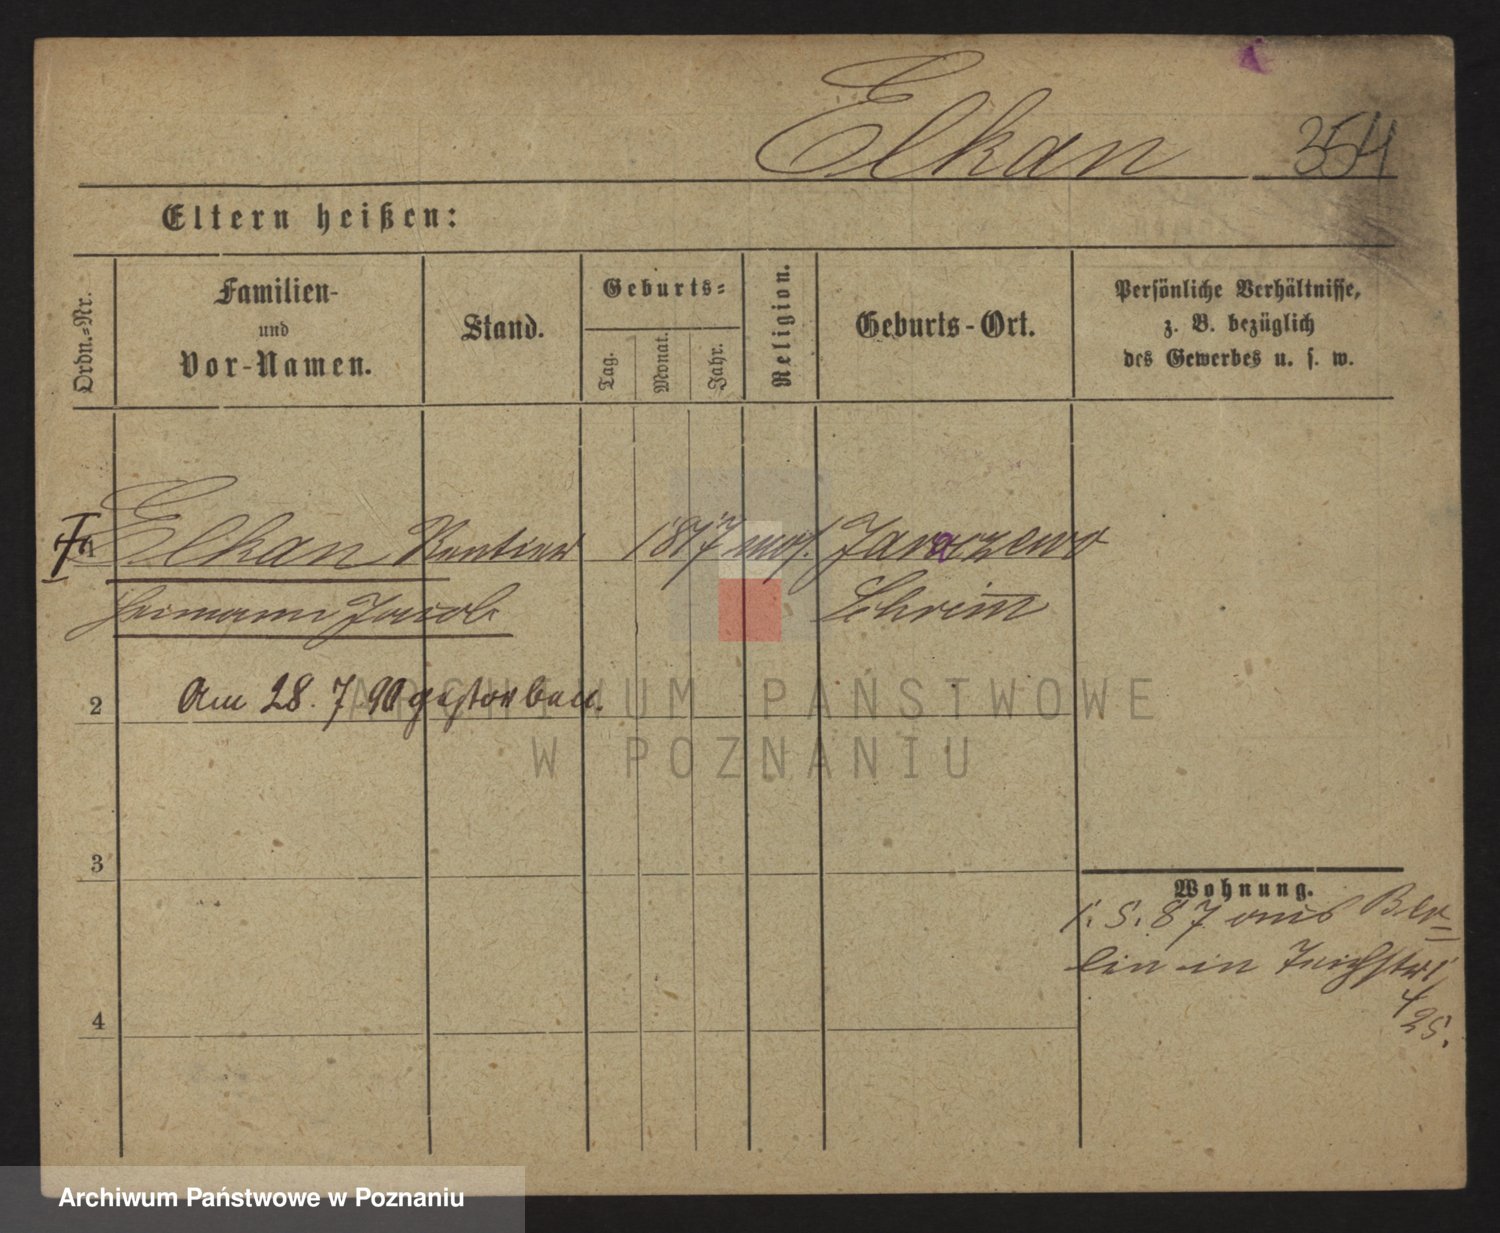 Elkan 354
Eltern heißen:
Ordn.-Nr.
Familien-
und
Vor-Namen.
Stand.
Geburts-
Tag.
Monat.
Jahr.
Religion.
Geburts-Ort.
Persönliche Verhältnisse,
z. B. bezüglich
des Gewerbes u. s. w.
1 Elkan Rentier 1817 mos. Jaraczewo
Hermann Jacob Schrimm
2 Am 28. 7 90 gestorben.
3
4
Wohnung.
1. 5. 87 aus Ber=
lin in Teichstr.
4/25.
ARCHIWUM PAŃSTWOWE
W POZNANIU
Archiwum Państwowe w Poznaniu